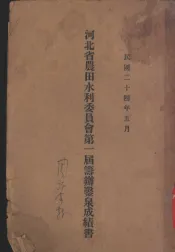 民國二十四年五月
河北省農田水利委員會第一屆籌辦鑿泉成績書